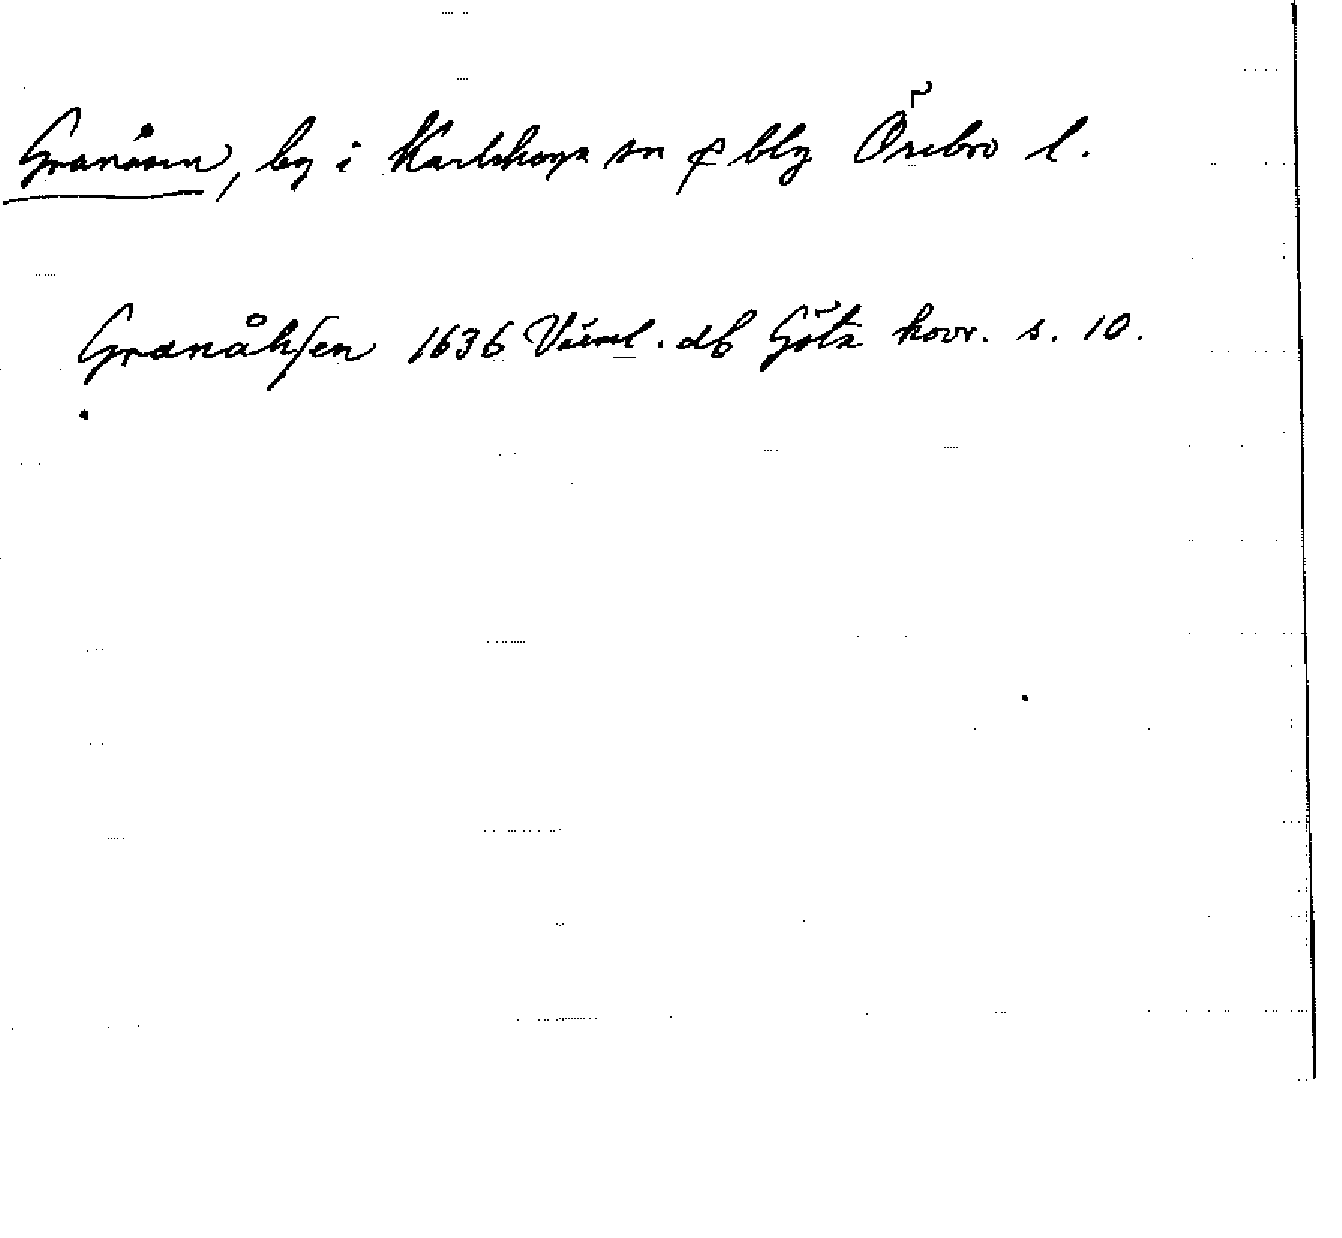 Granåsen, by i Karlskoga sn o blg Örebro l.
Granåhsen 1636 Värml. db Göta hovr. s. 10.